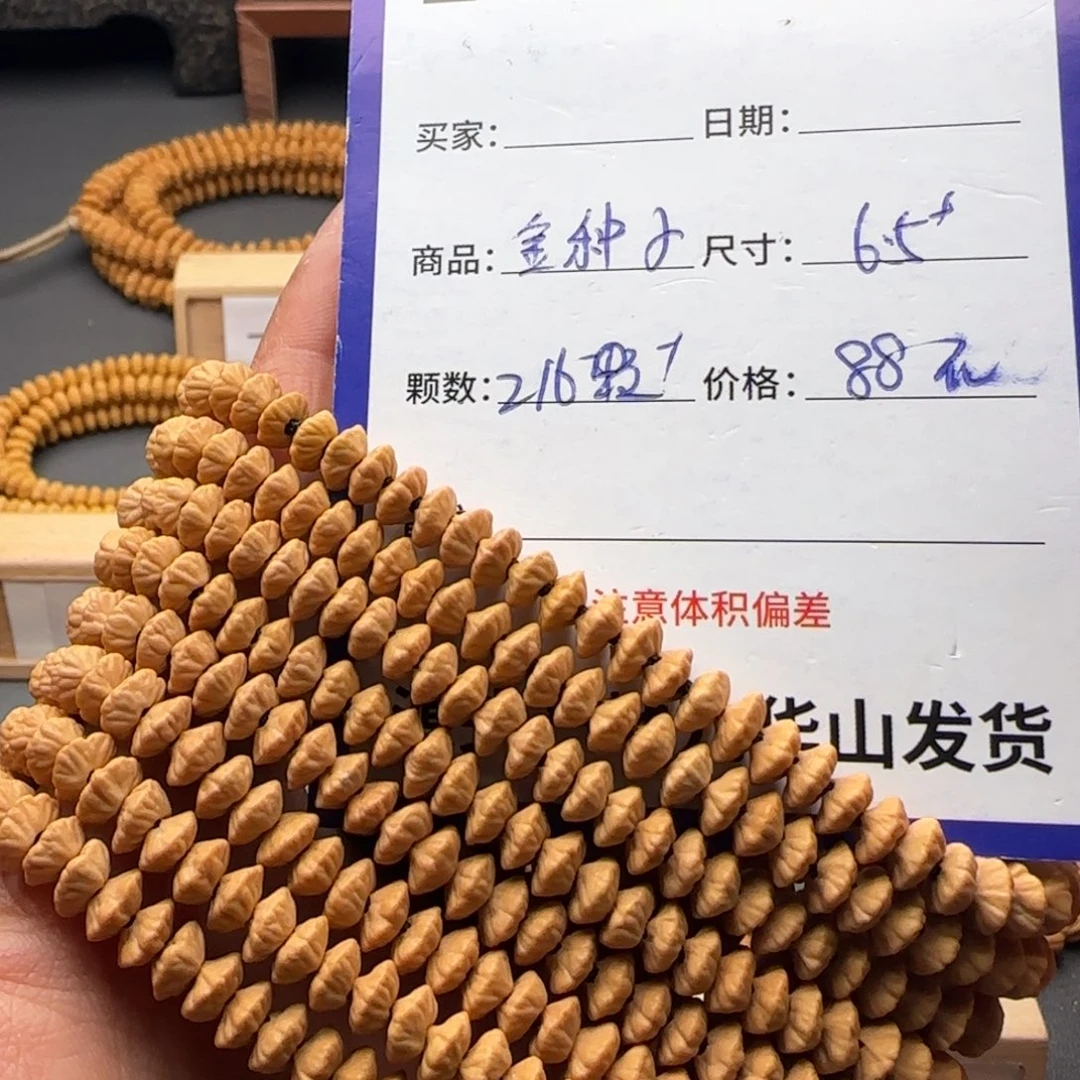 买家： 日期：
商品：金种子 尺寸：6.5+
颗数：216颗+ 价格：88元
注意体积偏差
华山发货